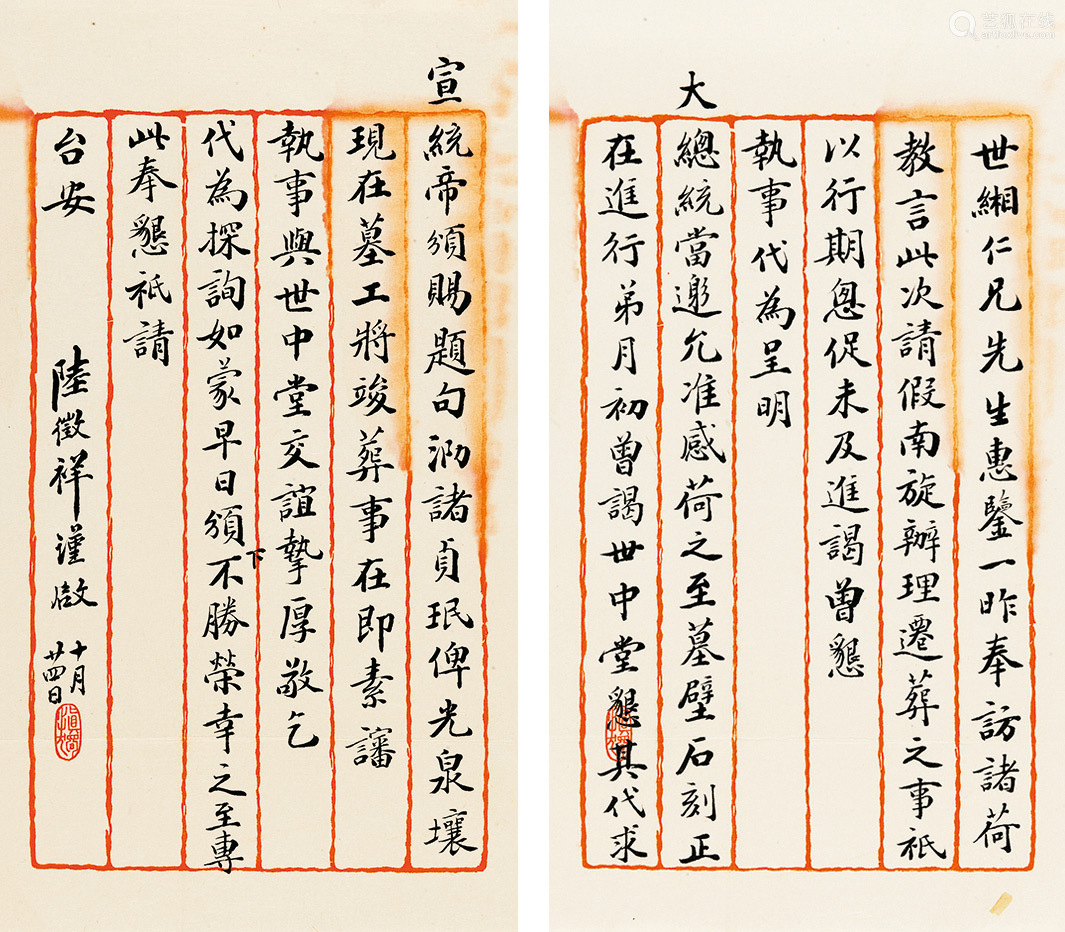 世緗仁兄先生惠鑒一昨奉訪諸荷
教言此次請假南旋辦理遷葬之事祇
以行期怱促未及進謁曾懇
執事代為呈明
大
總統當邀允准感荷之至墓壁石刻正
在進行弟月初曾謁世中堂懇其代求
宣
統帝頒賜題句泐諸貞珉俾光泉壤
現在墓工將竣葬事在即素讅
執事與世中堂交誼摯厚敬乞
代為探詢如蒙早日頒下不勝榮幸之至專
此奉懇祇請
台安
陸徵祥謹啟
十月
廿四日
艺狐在线
artfoxlive.com